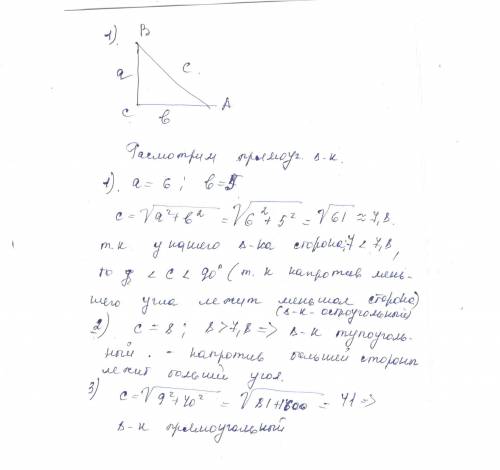 1).
B
a
c.
C
b
A
Расмотрим прямоуг. в-к.
1). a = 6 ; b = 5
c = √a² + b² = √6² + 5² = √61 ≈ 7,8.
т.к. у нашего в-ка сторона 7 < 7,8,
то < C < 90° (т.к напротив мень-
шего угла лежит меньшая сторона)
(в-к - остроугольный)
2) c = 8 ; 8 > 7,8 => в-к тупоуголь-
ный. - напротив большей стороны
лежит больший угол.
3) c = √9² + 40² = √81 + 1600 = 41 =>
в-к прямоугольный